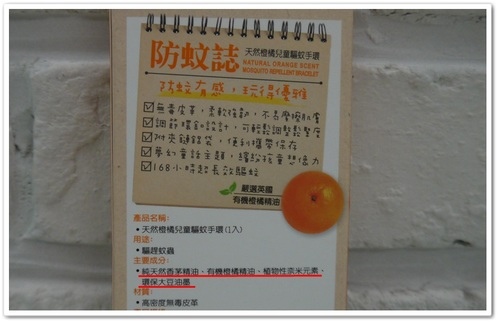 防蚊誌 天然橙橘兒童驅蚊手環
NATURAL ORANGE SCENT
MOSQUITO REPELLENT BRACELET
防蚊有感，玩得優雅
無毒皮革，柔軟服貼，不易磨擦肌膚
調節釦的設計，可輕鬆調整鬆緊度
附夾鏈銘袋，便利攜帶保存
夢幻童話主題，繽紛孩童想像力
168小時超長效驅蚊
嚴選英國
有機橙橘精油
產品名稱:
• 天然橙橘兒童驅蚊手環 (1入)
用途:
• 驅趕蚊蟲
主要成分:
• 純天然香茅精油、有機橙橘精油、植物性奈米元素、
環保大豆油墨
材質:
• 高密度無毒皮革